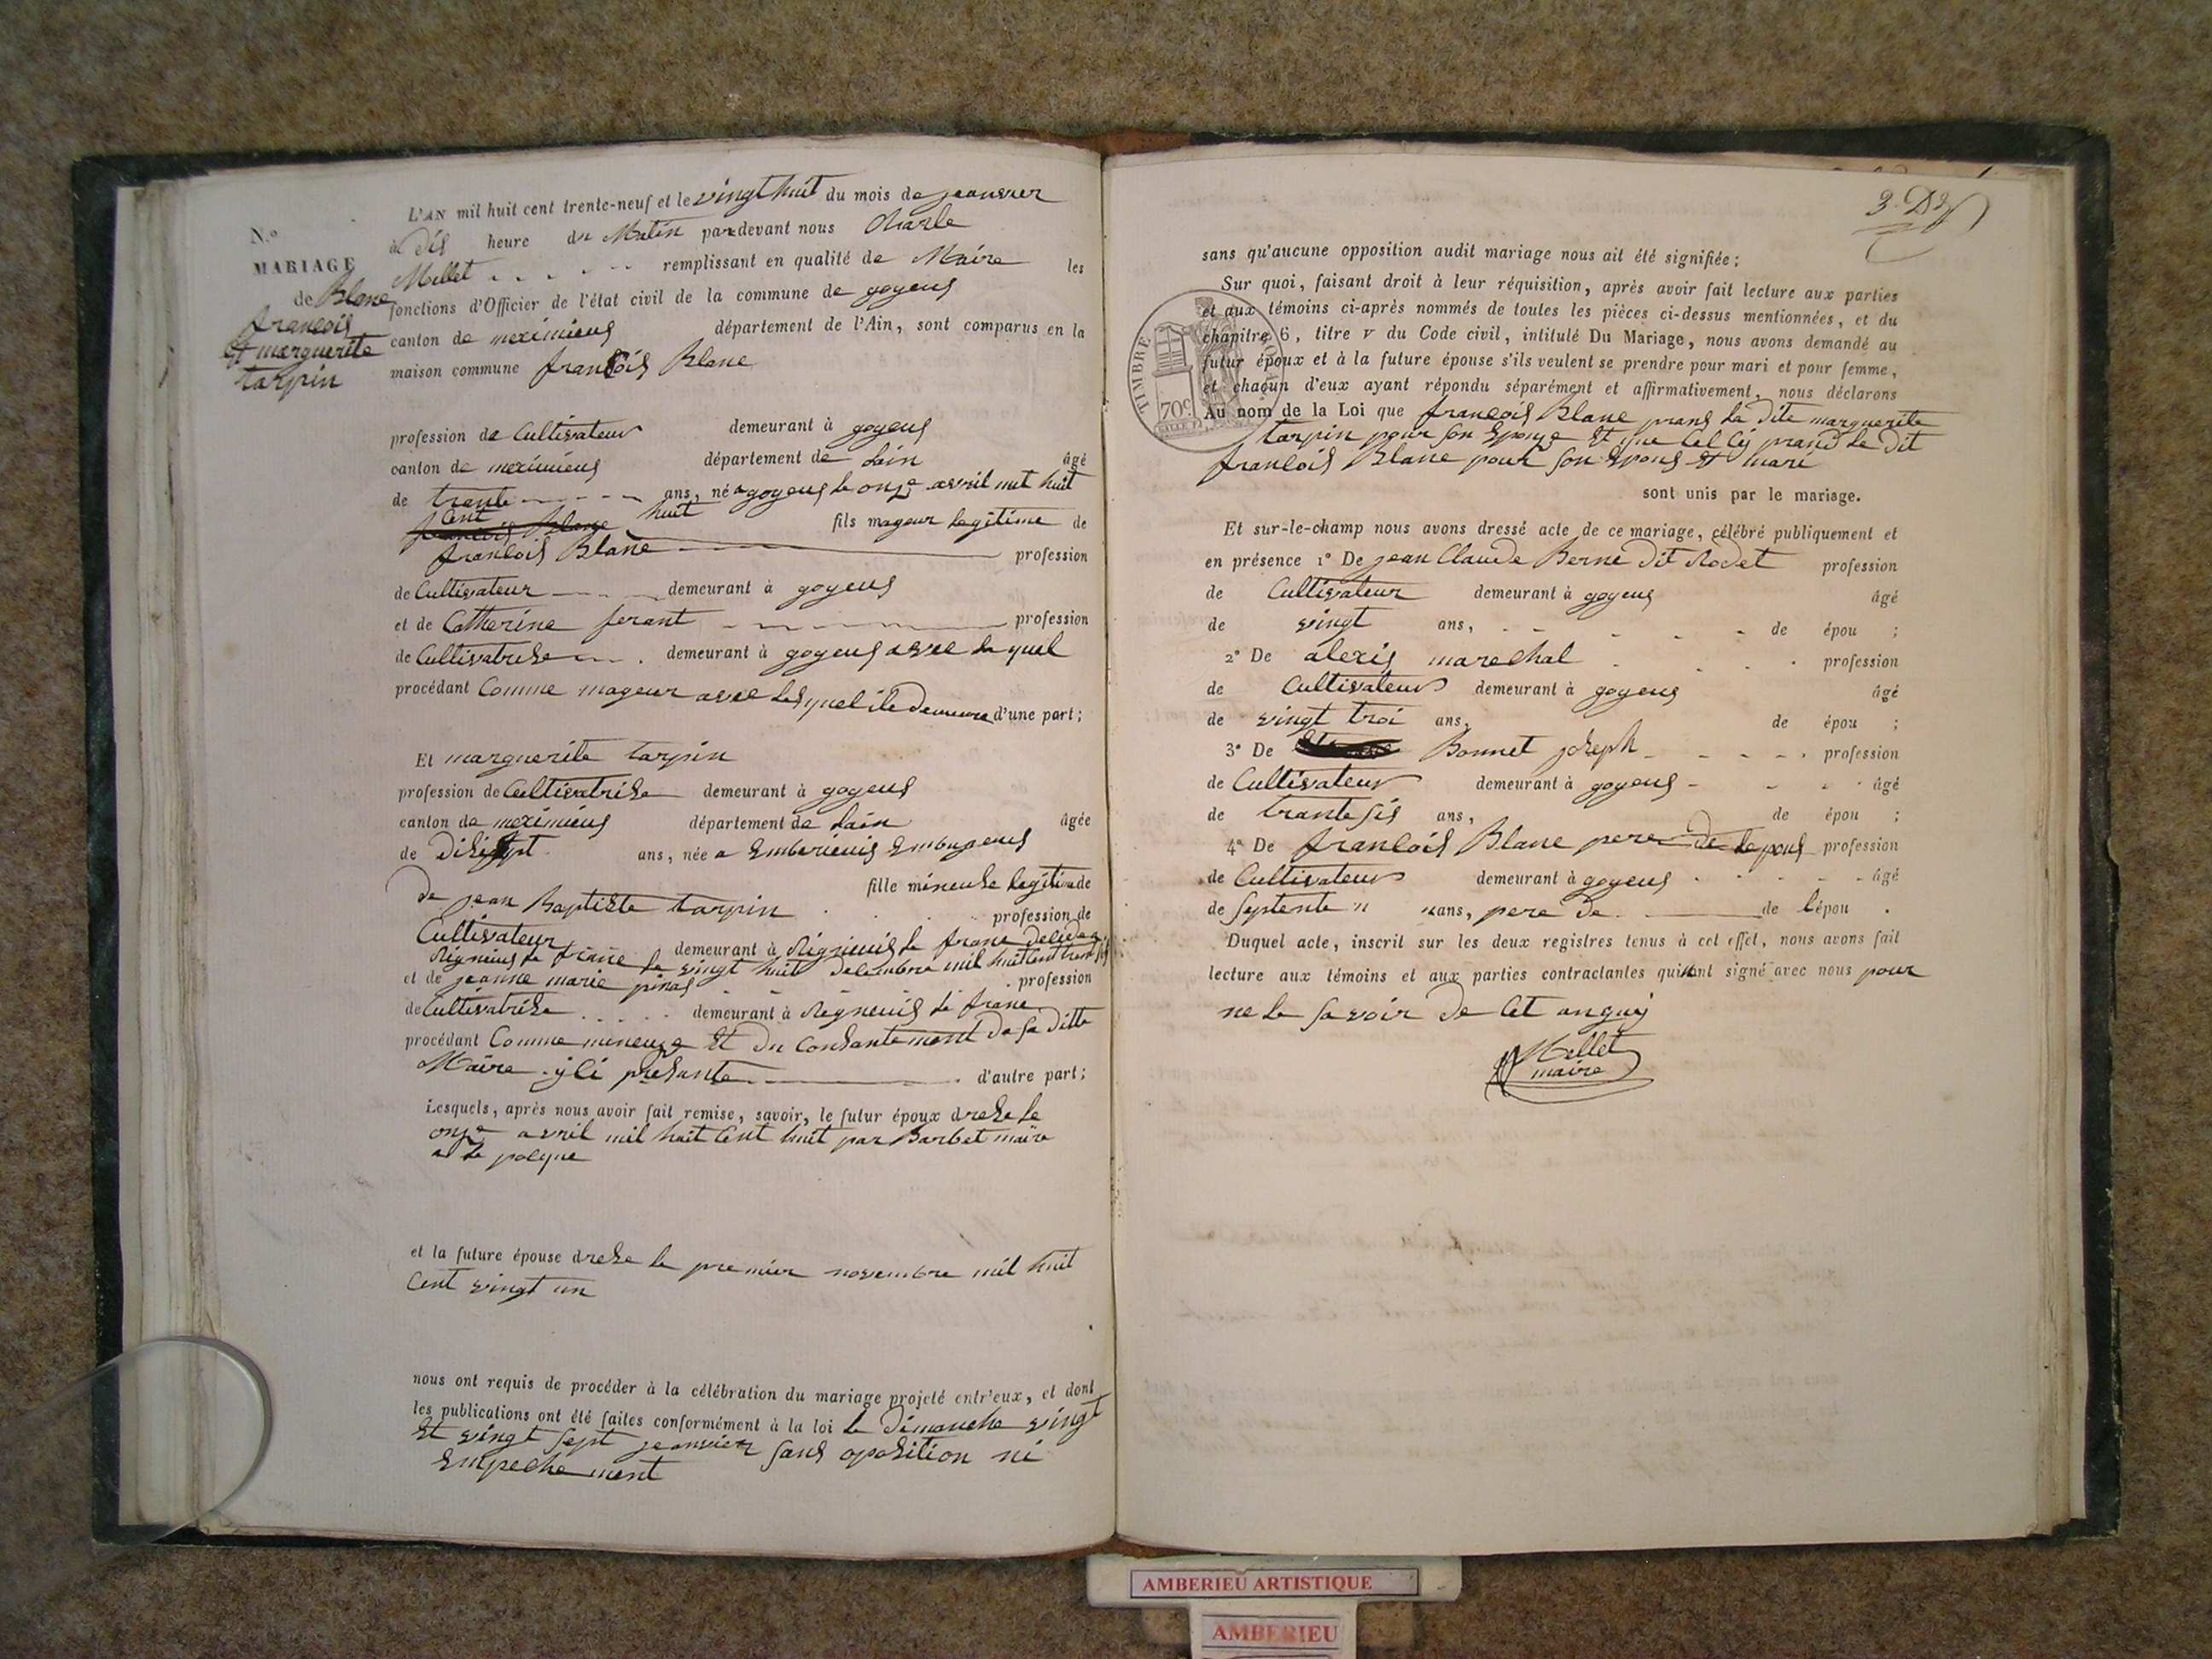 N.º
MARIAGE
de Blanc
francois
Et marguerite
tarpin
L'AN mil huit cent trente-neuf et le vingt huit du mois de jeanvier
à dis heure du Matin pardevant nous Charle
Mellet remplissant en qualité de Maire les
fonctions d'Officier de l'état civil de la commune de goyeus
canton de meximieus département de l'Ain, sont comparus en la
maison commune francois Blanc
profession de Cultivateur demeurant à goyeus
canton de meximieus département de Lain âgé
de trante ans, né a goyeus le onze avril mil huit
Cent huit fils mageur legitime de
francois Blanc profession
de Cultivateur demeurant à goyeus
et de Catherine ferant profession
de Cultivatrise demeurant à goyeus avec la quel
procédant Comme mageur avec lesquel ile demeure d'une part;
Et marguerite tarpin
profession de Cultivatrise demeurant à goyeus
canton de meximieus département de Lain âgée
de diesept ans, née a Emberieuis Embugeus
fille mineuse legitime de
de jean Baptiste tarpin profession de
Cultivateur demeurant à Rignieuis le franc deledea
Rignieuis le franc le vingt huit decembre mil huit cent trent sis
et de jeanne marie pinas profession
de Cultivatrise demeurant à Rigneuis le franc
procédant Comme mineuze Et du Consantement de sa ditte
Maire yci presante d'autre part;
Lesquels, après nous avoir fait remise, savoir, le futur époux drese le
onze avril mil huit Cent huit par Barbet maire
a le polyne
et la future épouse drese le premier novembre mil huit
Cent vingt un
nous ont requis de procéder à la célébration du mariage projeté entr'eux, et dont
les publications ont été faites conformément à la loi le dimanche vingt
Et vingt sept jeanvier sans oposition ni
Empechement
3.
sans qu'aucune opposition audit mariage nous ait été signifiée;
Sur quoi, faisant droit à leur réquisition, après avoir fait lecture aux parties
et aux témoins ci-après nommés de toutes les pièces ci-dessus mentionnées, et du
chapitre 6, titre v du Code civil, intitulé Du Mariage, nous avons demandé au
futur époux et à la future épouse s'ils veulent se prendre pour mari et pour femme,
et chacun d'eux ayant répondu séparément et affirmativement, nous déclarons
TIMBRE ROYAL
70c
Au nom de la Loi que francois Blanc prans la dite marguerite
tarpin pour son Epouze Et que Cel Cy prand le dit
francois Blanc pour son Epous Et mari
sont unis par le mariage.
Et sur-le-champ nous avons dressé acte de ce mariage, célébré publiquement et
en présence 1º De jean Claude Berne dit Rodet profession
de Cultivateur demeurant à goyeus âgé
de vingt ans, de épou ;
2º De alexis marechal profession
de Cultivateur demeurant à goyeus âgé
de vingt troi ans, de épou ;
3º De Bonnet joseph profession
de Cultivateur demeurant à goyeus âgé
de trante sis ans, de épou ;
4º De francois Blanc pere de lepous profession
de Cultivateur demeurant à goyeus âgé
de septente ans, pere de de lépou .
Duquel acte, inscrit sur les deux registres tenus à cet effet, nous avons fait
lecture aux témoins et aux parties contractantes qui nont signé avec nous pour
ne le savoir de Cet anquij
Mellet
maire
AMBERIEU ARTISTIQUE
AMBERIEU